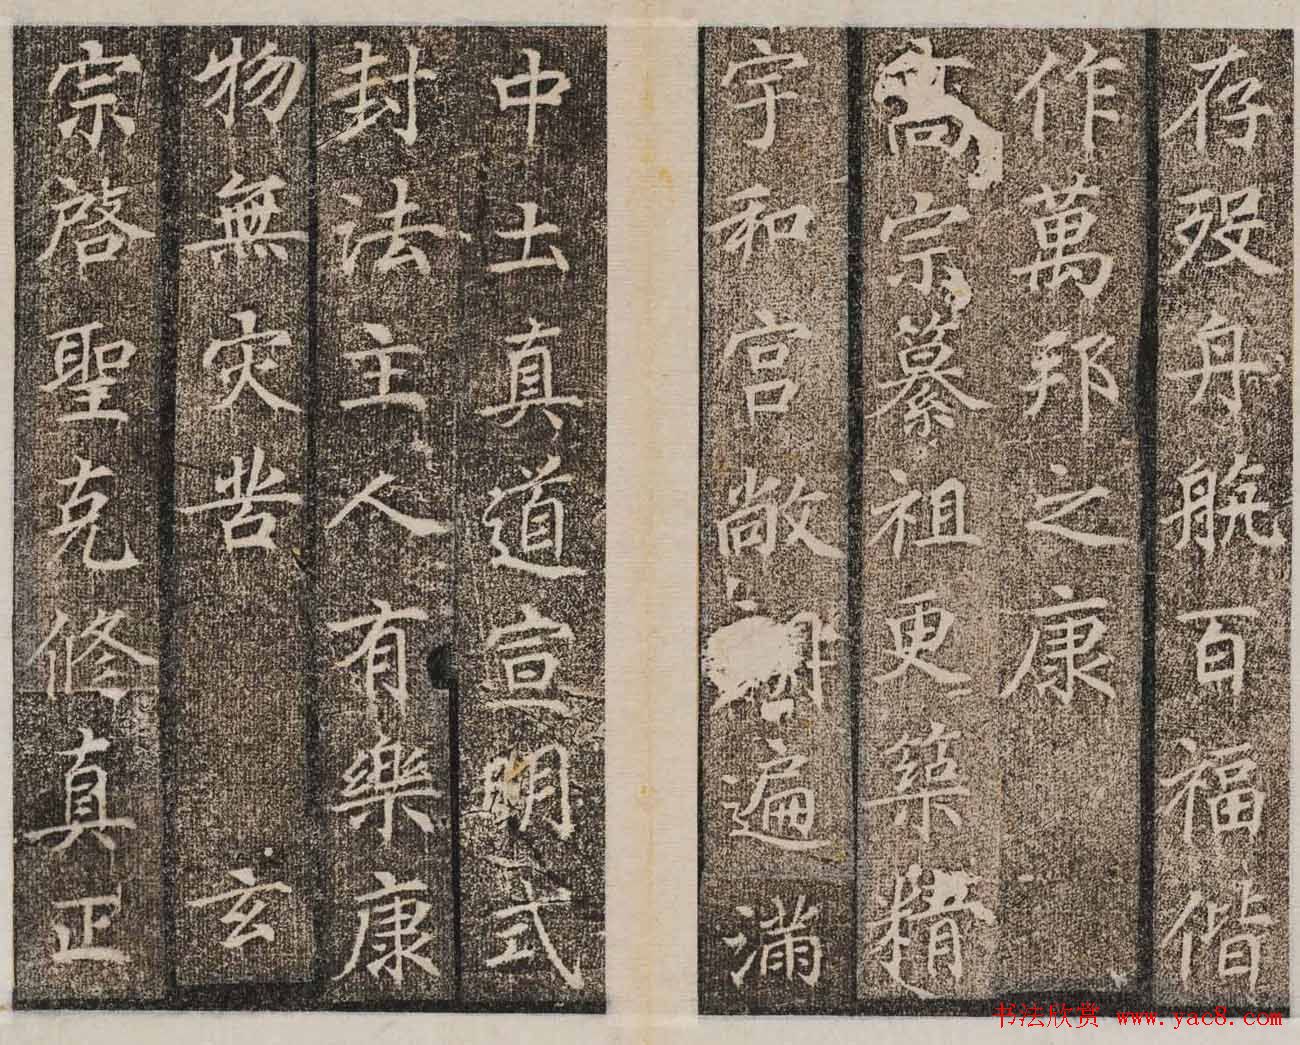 存歿舟航百福偕
作萬邦之康
高宗纂祖更築精
宇和宫敞朗遍滿
中土真道宣明式
封法主人有樂康
物無灾苦 玄
宗啓聖克修真正
书法欣赏 www.yac8.com